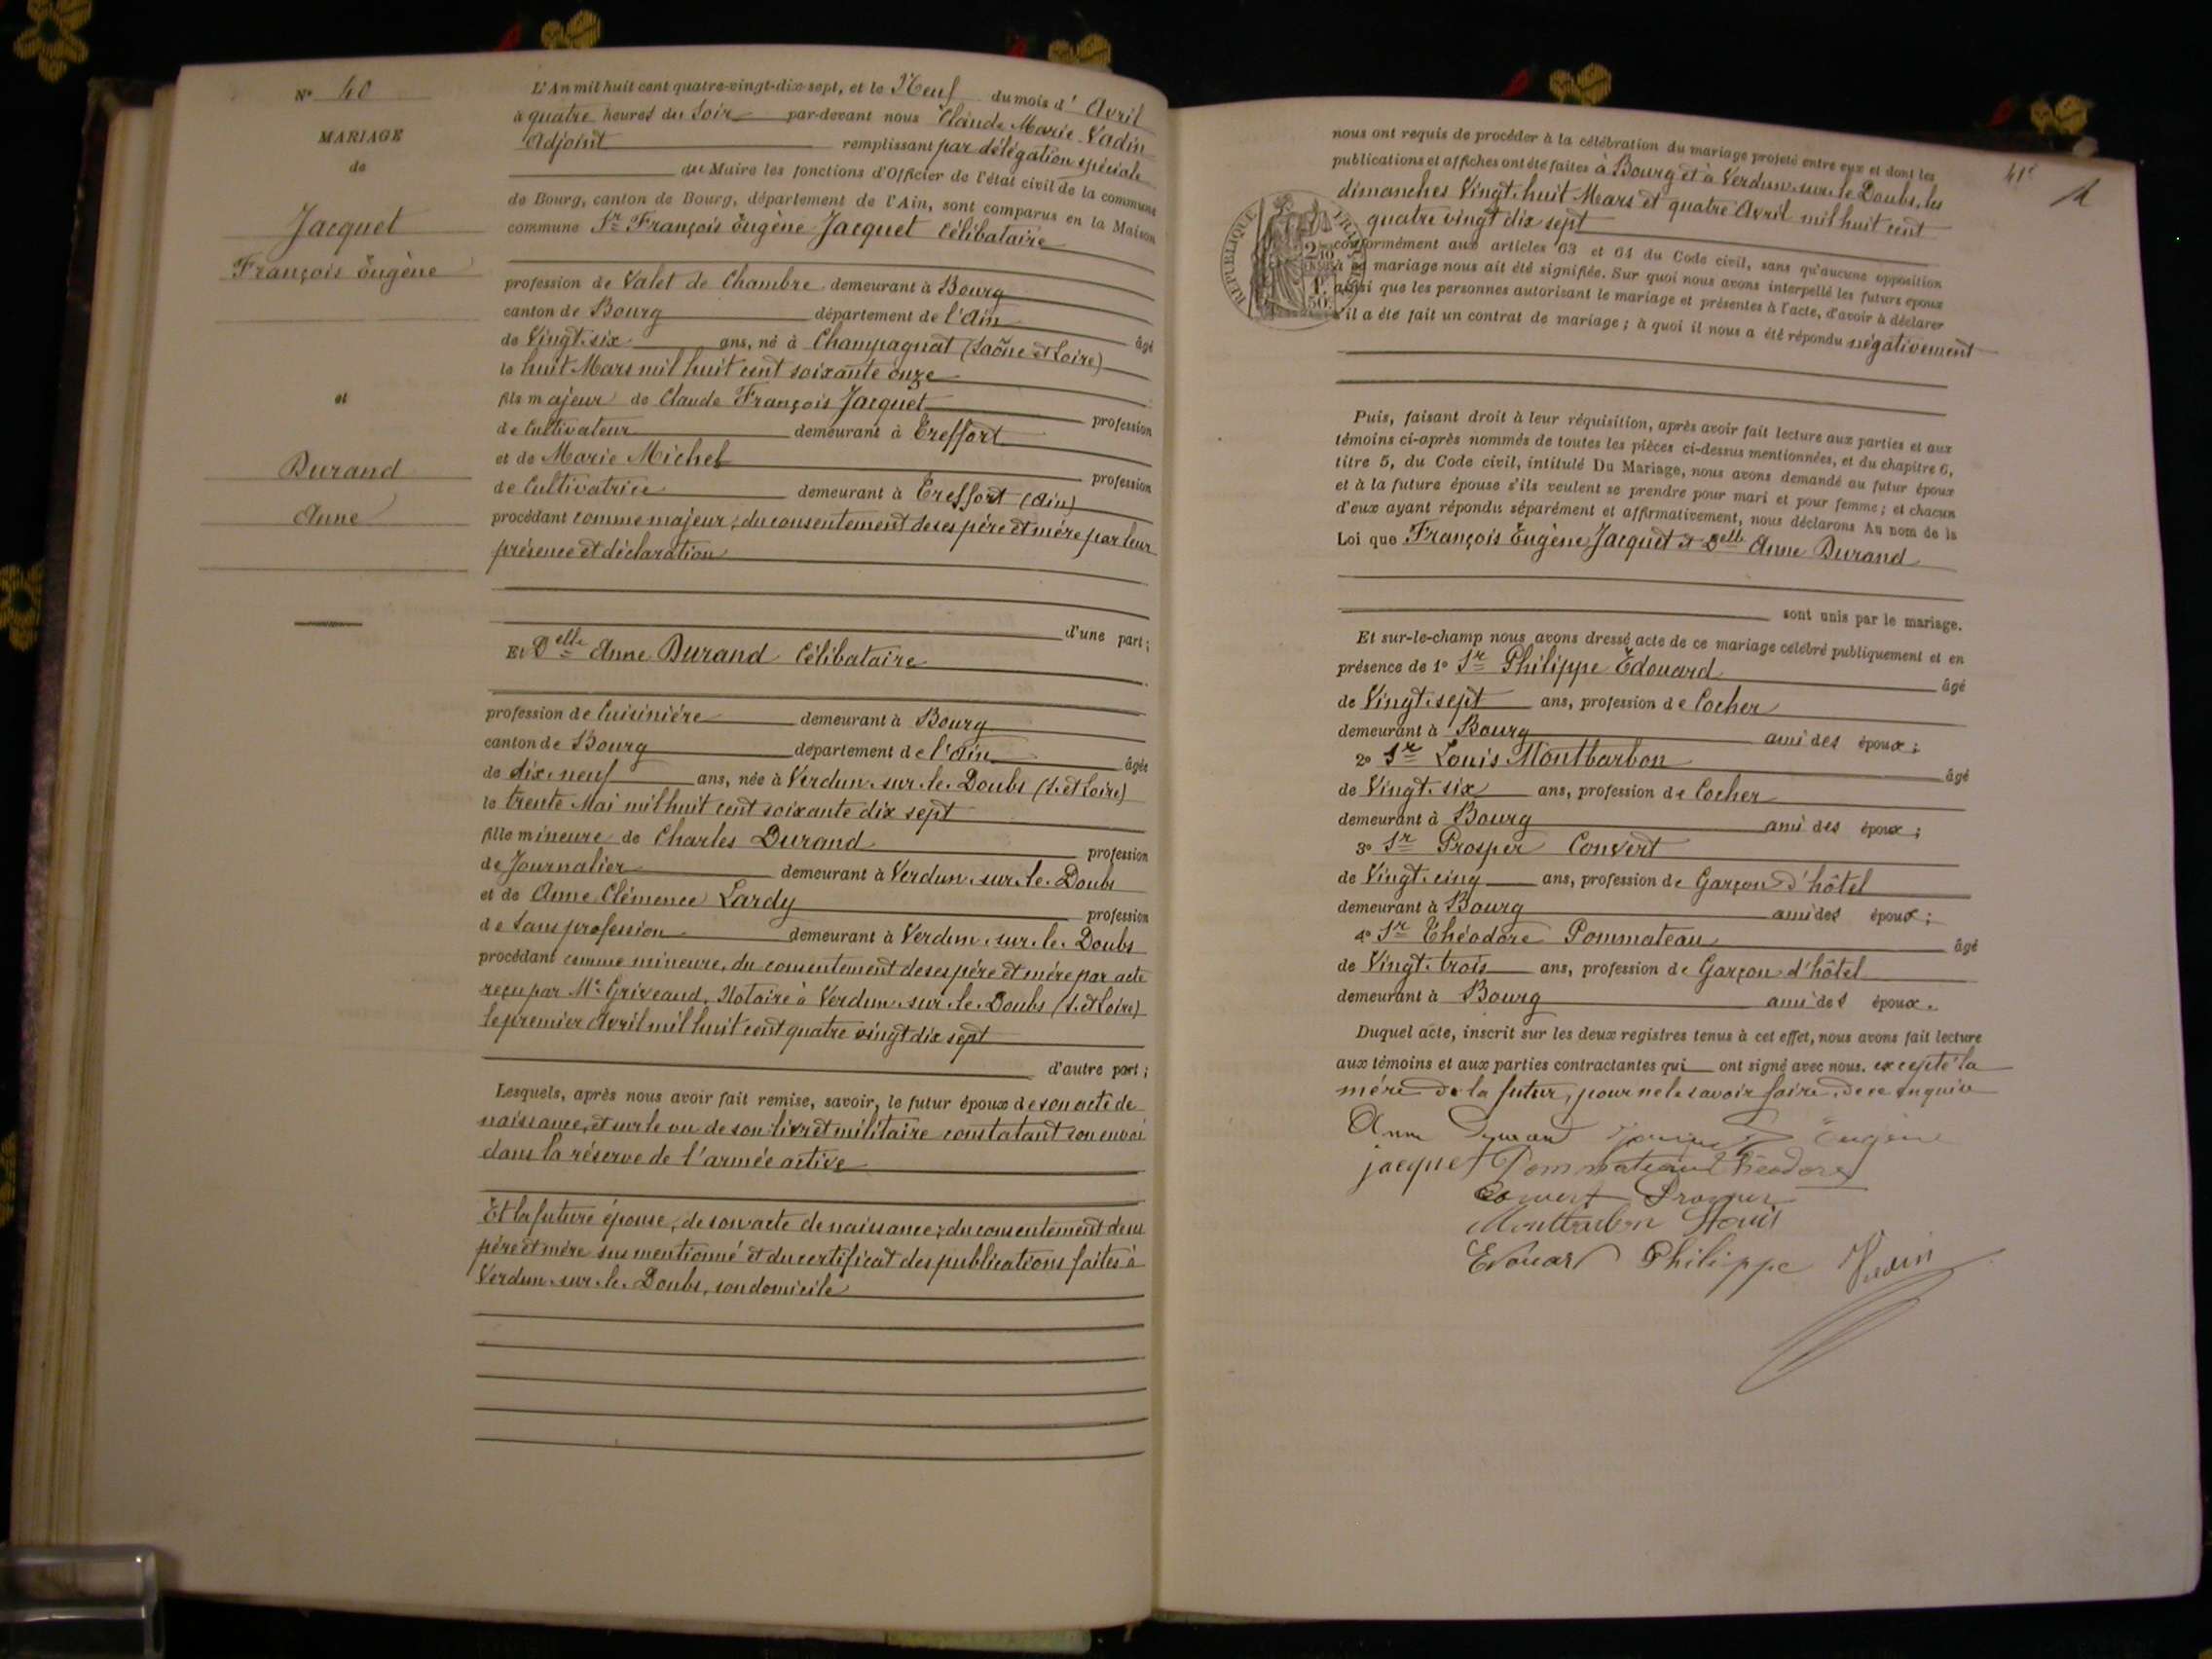 N° 40
MARIAGE
de
Jacquet
François Eugène
et
Durand
Anne
L'An mil huit cent quatre-vingt-dix sept, et le Neuf du mois d'Avril
à quatre heures du Soir par-devant nous Claude Marie Vadin
Adjoint remplissant par délégation spéciale
du Maire les fonctions d'Officier de l'état civil de la commune
de Bourg, canton de Bourg, département de l'Ain, sont comparus en la Maison
commune Sr François Eugène Jacquet Célibataire
profession de Valet de Chambre demeurant à Bourg
canton de Bourg département de l'Ain âgé
de Vingt-six ans, né à Champagnat (Saône et Loire)
le huit Mars mil huit cent soixante onze
fils majeur de Claude François Jacquet profession
de Cultivateur demeurant à Treffort
et de Marie Michel profession
de Cultivatrice demeurant à Treffort (Ain)
procédant comme majeur, du consentement de ses père et mère par leur
présence et déclaration
d'une part;
Et Delle Anne Durand Célibataire
profession de Cuisinière demeurant à Bourg
canton de Bourg département de l'Ain âgée
de dix-neuf ans, née à Verdun-sur-le-Doubs (S. et Loire)
le trente Mai mil huit cent soixante dix sept
fille mineure de Charles Durand profession
de Journalier demeurant à Verdun-sur-le-Doubs
et de Anne Clémence Lardy profession
de Sans profession demeurant à Verdun-sur-le-Doubs
procédant comme mineure, du consentement de ses père et mère par acte
reçu par Me Griveaud, Notaire à Verdun-sur-le-Doubs (S. et Loire)
le premier Avril mil huit cent quatre vingt dix sept
d'autre part;
Lesquels, après nous avoir fait remise, savoir, le futur époux de son acte de
naissance, et sur le vu de son livret militaire constatant son envoi
dans la réserve de l'armée active
Et la future épouse, de son acte de naissance; du consentement de ses
père et mère sus mentionné et du certificat des publications faites à
Verdun-sur-le-Doubs, son domicile
41e
nous ont requis de procéder à la célébration du mariage projeté entre eux et dont les
publications et affiches ont été faites à Bourg et à Verdun-sur-le-Doubs, les
dimanches Vingt-huit Mars et quatre Avril mil huit cent
quatre vingt dix sept
conformément aux articles 63 et 64 du Code civil, sans qu'aucune opposition
à ce mariage nous ait été signifiée. Sur quoi nous avons interpellé les futurs époux
ainsi que les personnes autorisant le mariage et présentes à l'acte, d'avoir à déclarer
s'il a été fait un contrat de mariage; à quoi il nous a été répondu négativement
RÉPUBLIQUE FRANÇAISE
Puis, faisant droit à leur réquisition, après avoir fait lecture aux parties et aux
témoins ci-après nommés de toutes les pièces ci-dessus mentionnées, et du chapitre 6,
titre 5, du Code civil, intitulé Du Mariage, nous avons demandé au futur époux
et à la future épouse s'ils veulent se prendre pour mari et pour femme; et chacun
d'eux ayant répondu séparément et affirmativement, nous déclarons Au nom de la
Loi que François Eugène Jacquet et Delle Anne Durand
sont unis par le mariage.
Et sur-le-champ nous avons dressé acte de ce mariage célébré publiquement et en
présence de 1° Sr Philippe Edouard âgé
de Vingt-sept ans, profession de Cocher
demeurant à Bourg ami des époux;
2° Sr Louis Montbarbon âgé
de Vingt-six ans, profession de Cocher
demeurant à Bourg ami des époux;
3° Sr Prosper Convert
de Vingt-cinq ans, profession de Garçon d'hôtel
demeurant à Bourg ami des époux;
4° Sr Théodore Pommateau âgé
de Vingt-trois ans, profession de Garçon d'hôtel
demeurant à Bourg ami des époux.
Duquel acte, inscrit sur les deux registres tenus à cet effet, nous avons fait lecture
aux témoins et aux parties contractantes qui ont signé avec nous. excepté la
mère de la futur, pour ne le savoir faire, de ce enquise
Anne Durand Eugène
jacquet Pommateau théodore
Convert Prosper
Montbarbon Louis
Edouard Philippe Vadin